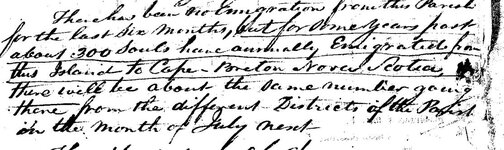 There has been no Emigration from this Parish
for the last Six Months, but for some years past
about 300 Souls have annually Emigrated from
this Island to Cape-Breton Nova Scotia,
there will be about the same number going
there from the different Districts of the Parish
in the month of July next